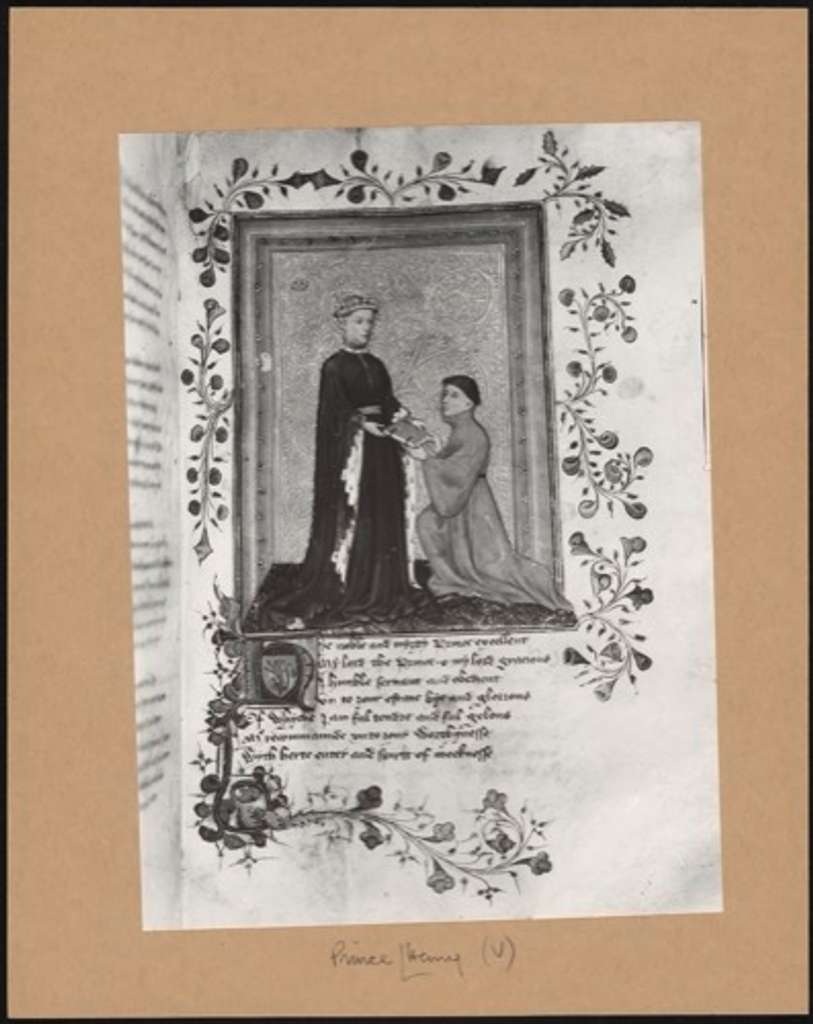 noble and myghty Prince excellent
lord the Prince o my lord gracious
humble servant and obedient
to your estate hye and glorious
Of whyche I am ful tendre and ful gelous
Me recommande unto your worthynesse
With herte entier and spirit of meeknesse
Prince Henry (V)